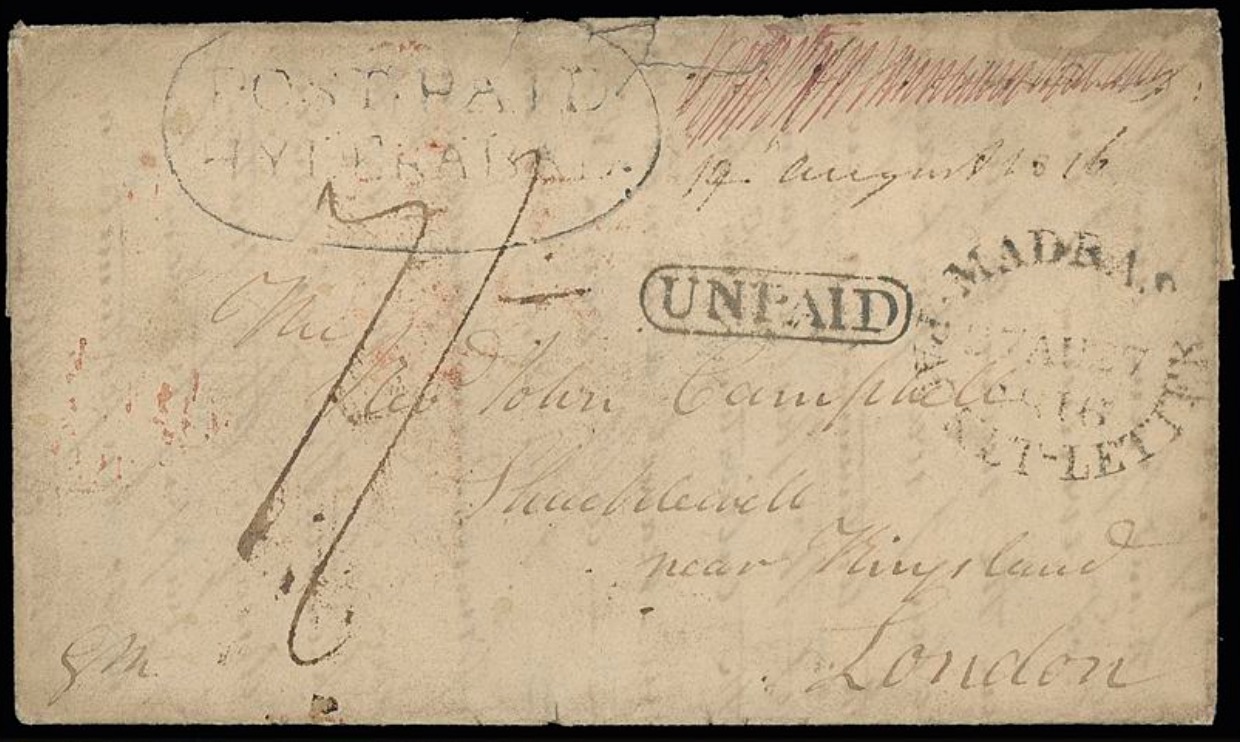 POST PAID
HYDERABAD
19 August 1816
UNPAID
MADRAS
27 AU 27
16
LETTER
The
Revd John Campbell
Shacklewell
near Kingsland
London